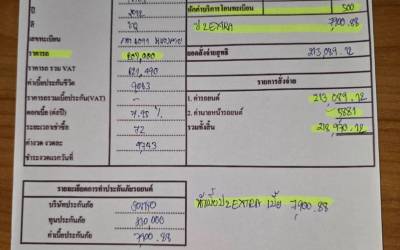 ปี
หักค่าบริการโอนทะเบียน 500
สี
ป2EXTRA 7900.88
เลขทะเบียน
ราคารถ
ยอดสั่งจ่ายสุทธิ 213,089.12
ราคารถ รวม VAT
ค่าเบี้ยประกันชีวิต 9083
รายการสั่งจ่าย
ราคารถรวมเบี้ยประกัน(VAT) -
1. ค่ารถยนต์ 213,089.12
ดอกเบี้ย (ต่อปี)
2. ค่านายหน้ารถยนต์ 5881
ระยะเวลาเช่าซื้อ 72
รวมทั้งสิ้น 218,970.12
ค่างวด งวดละ 4343
ชำระงวดแรกวันที่
รายละเอียดการทำประกันภัยรถยนต์
บริษัทประกันภัย
ทุนประกันภัย
หักเบี้ยป2EXTRA เบี้ย 7,900.88
ค่าเบี้ยประกันภัย 7900.88